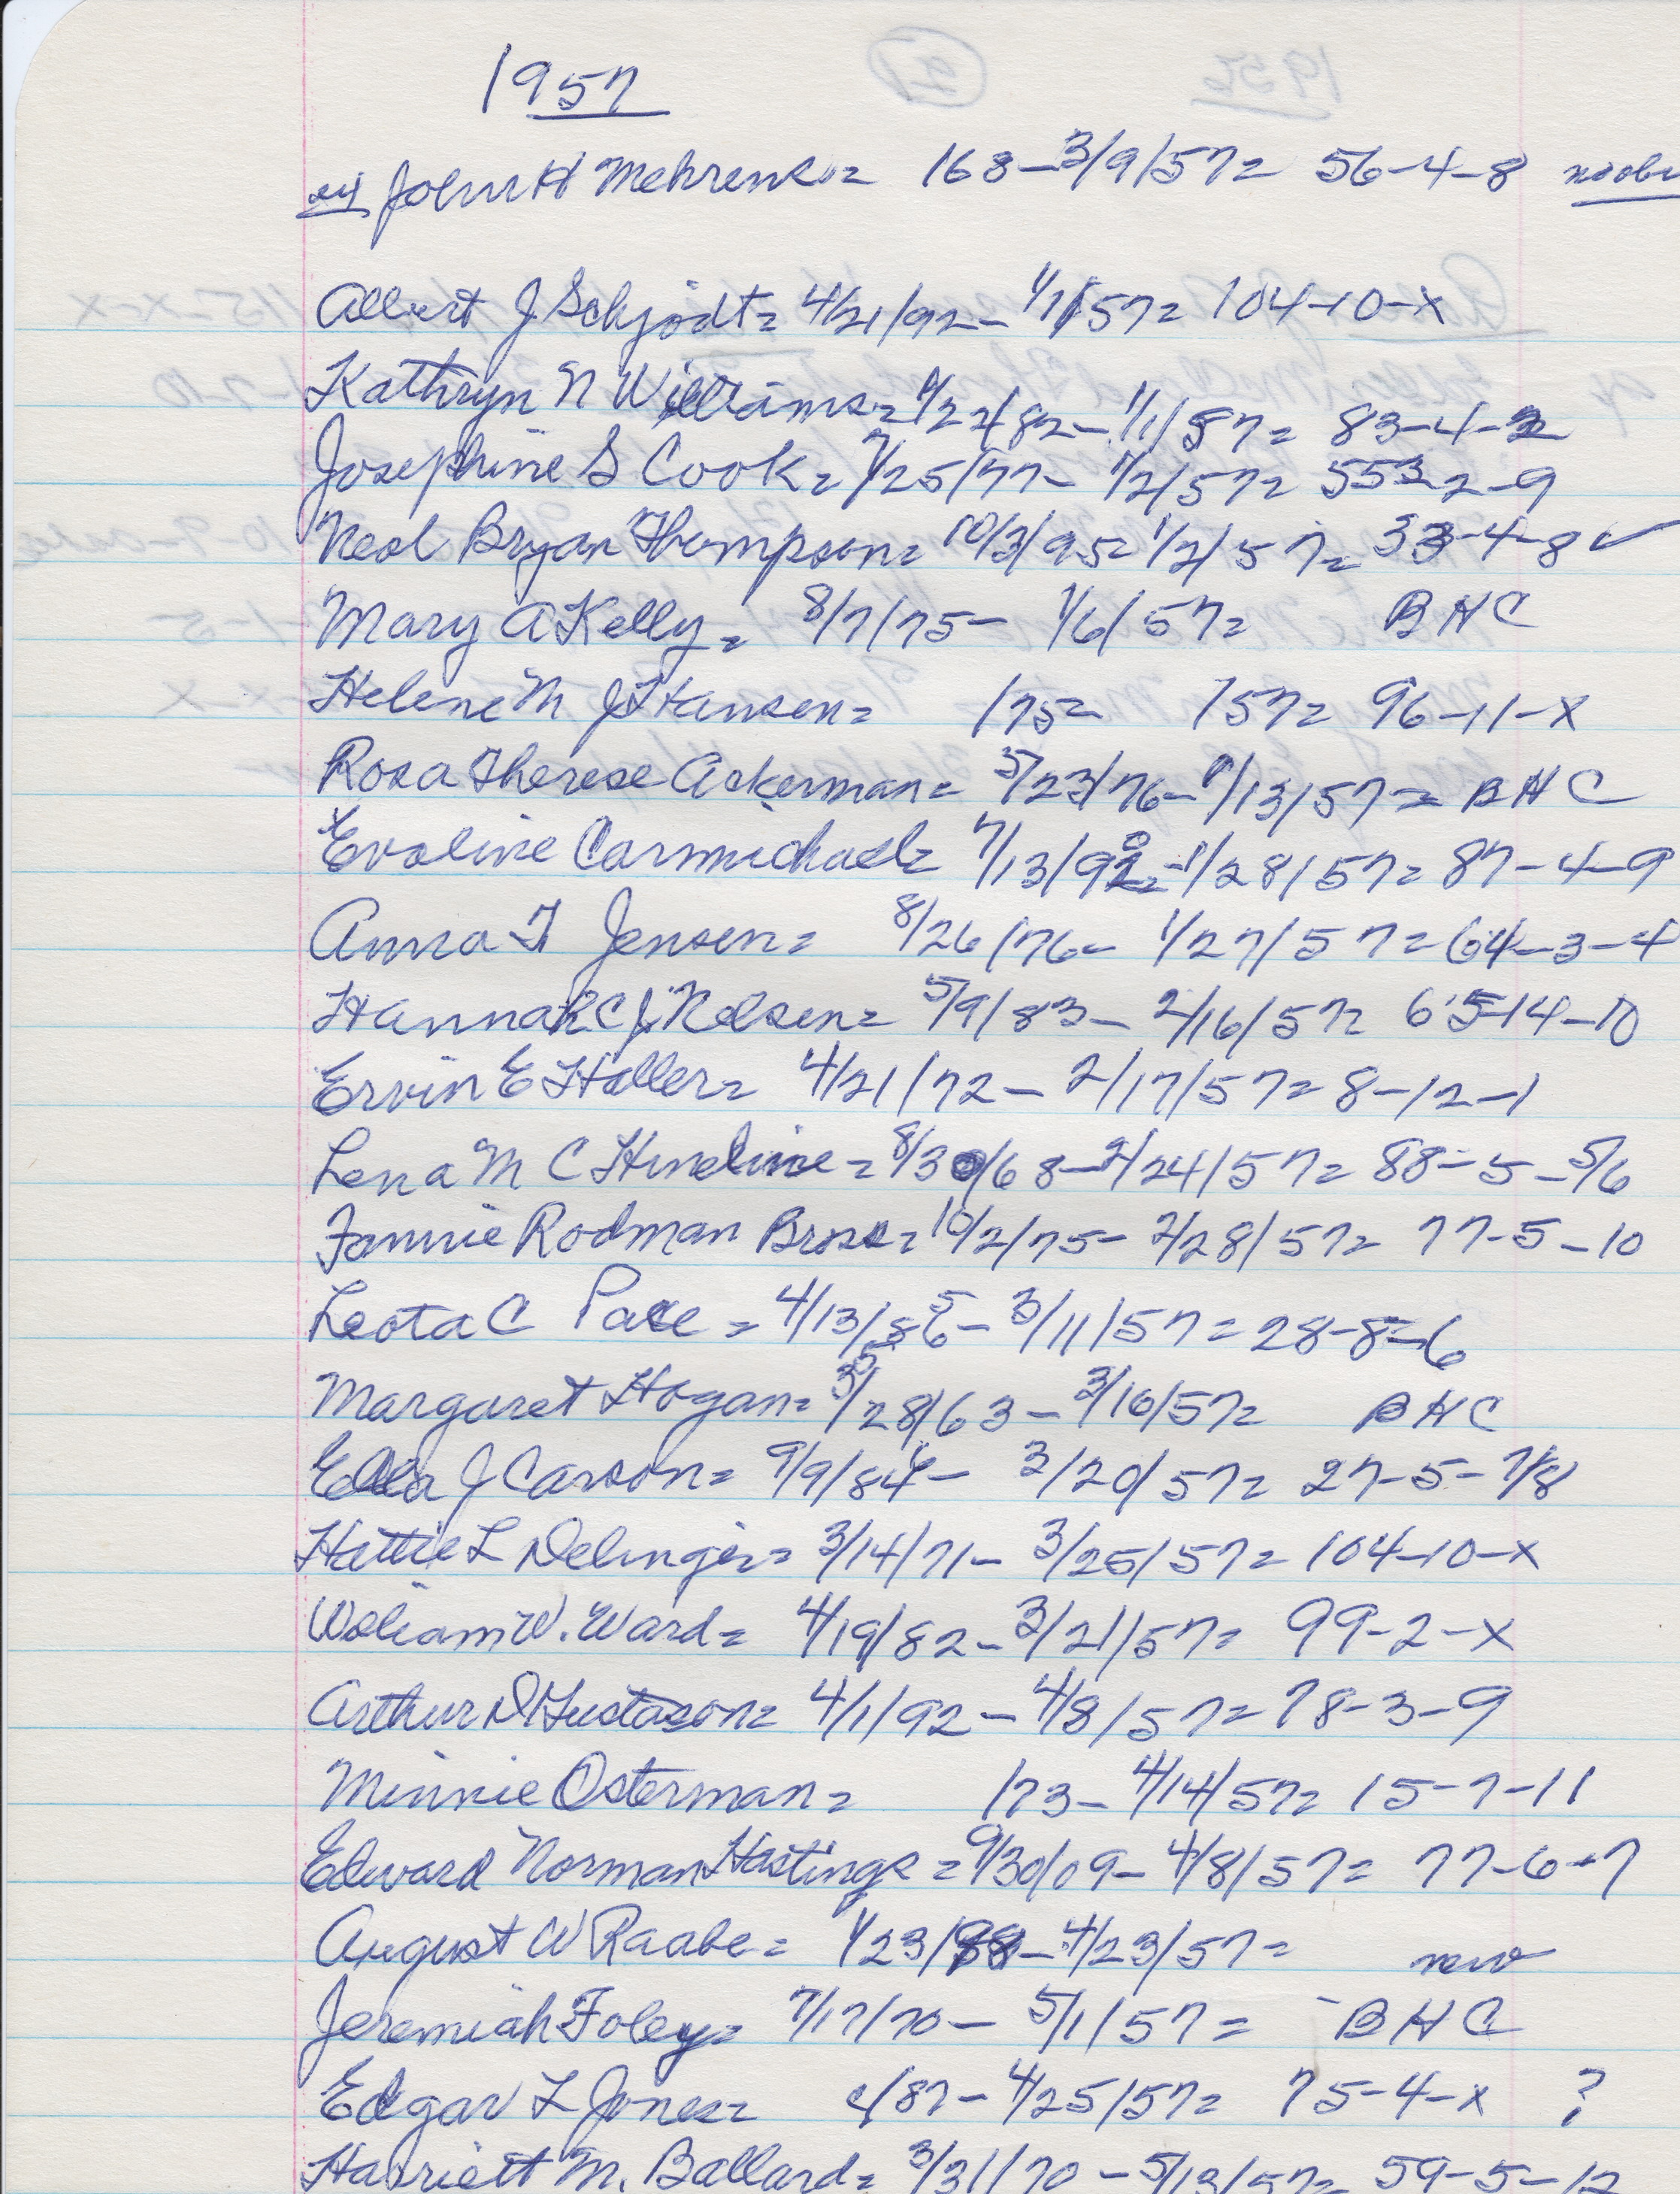 1957
John H Mehrens = 168 - 3/9/57 = 56-4-8
Albert J Schjodt = 4/21/92 - 1/1/57 = 104-10-x
Kathryn N Williams = 1/22/82 - 1/1/57 = 83-4-2
Josephine S Cook = 7/25/77 - 1/2/57 = 2-9
Neal Bryan Thompson = 10/3/95 = 1/2/57 = 33-4-8 ✓
Mary A Kelly = 8/7/75 - 1/6/57 = BHC
Helene M J Hansen = /75 = /57 = 96-11-x
Rosa Therese Ackerman = 5/23/76 - 1/13/57 = BHC
Evaline Carmichael = 7/13/ 1/28/57 = 87-4-9
Anna T Jensen = 8/26/76 - 1/27/57 = 64-3-4
Hannah C J Nelsen = 5/9/83 - 2/16/57 = 65-14-10
Ervin E Haller = 4/21/72 - 2/17/57 = 8-12-1
Lena M C Hineline = 8/30/68 - 2/24/57 = 88-5-5/6
Fannie Rodman Bross = 10/2/75 - 2/28/57 = 77-5-10
Leota C Pace = 4/13/ - 3/11/57 = 28-8-6
Margaret Hogan = /28/63 - 3/16/57 = BHC
Ella J Carson = 9/9/84 - 3/20/57 = 27-5-7/8
Hattie L Delinger = 3/14/71 - 3/25/57 = 104-10-x
William W. Ward = 4/19/82 - 3/21/57 = 99-2-x
Arthur D Gustason = 4/1/92 - 4/8/57 = 78-3-9
Minnie Osterman = /73 - 4/14/57 = 15-7-11
Edward Norman Hastings = 9/30/09 - 4/8/57 = 77-6-7
August W Raabe = 1/23/88 - 4/23/57 = new
Jeremiah Foley = 7/17/70 - 5/1/57 = BHC
Edgar L Jones = c/87 - 4/25/57 = 75-4-x ?
Harriett M. Ballard = 3/31/70 - 5/13/57 = 59-5-12